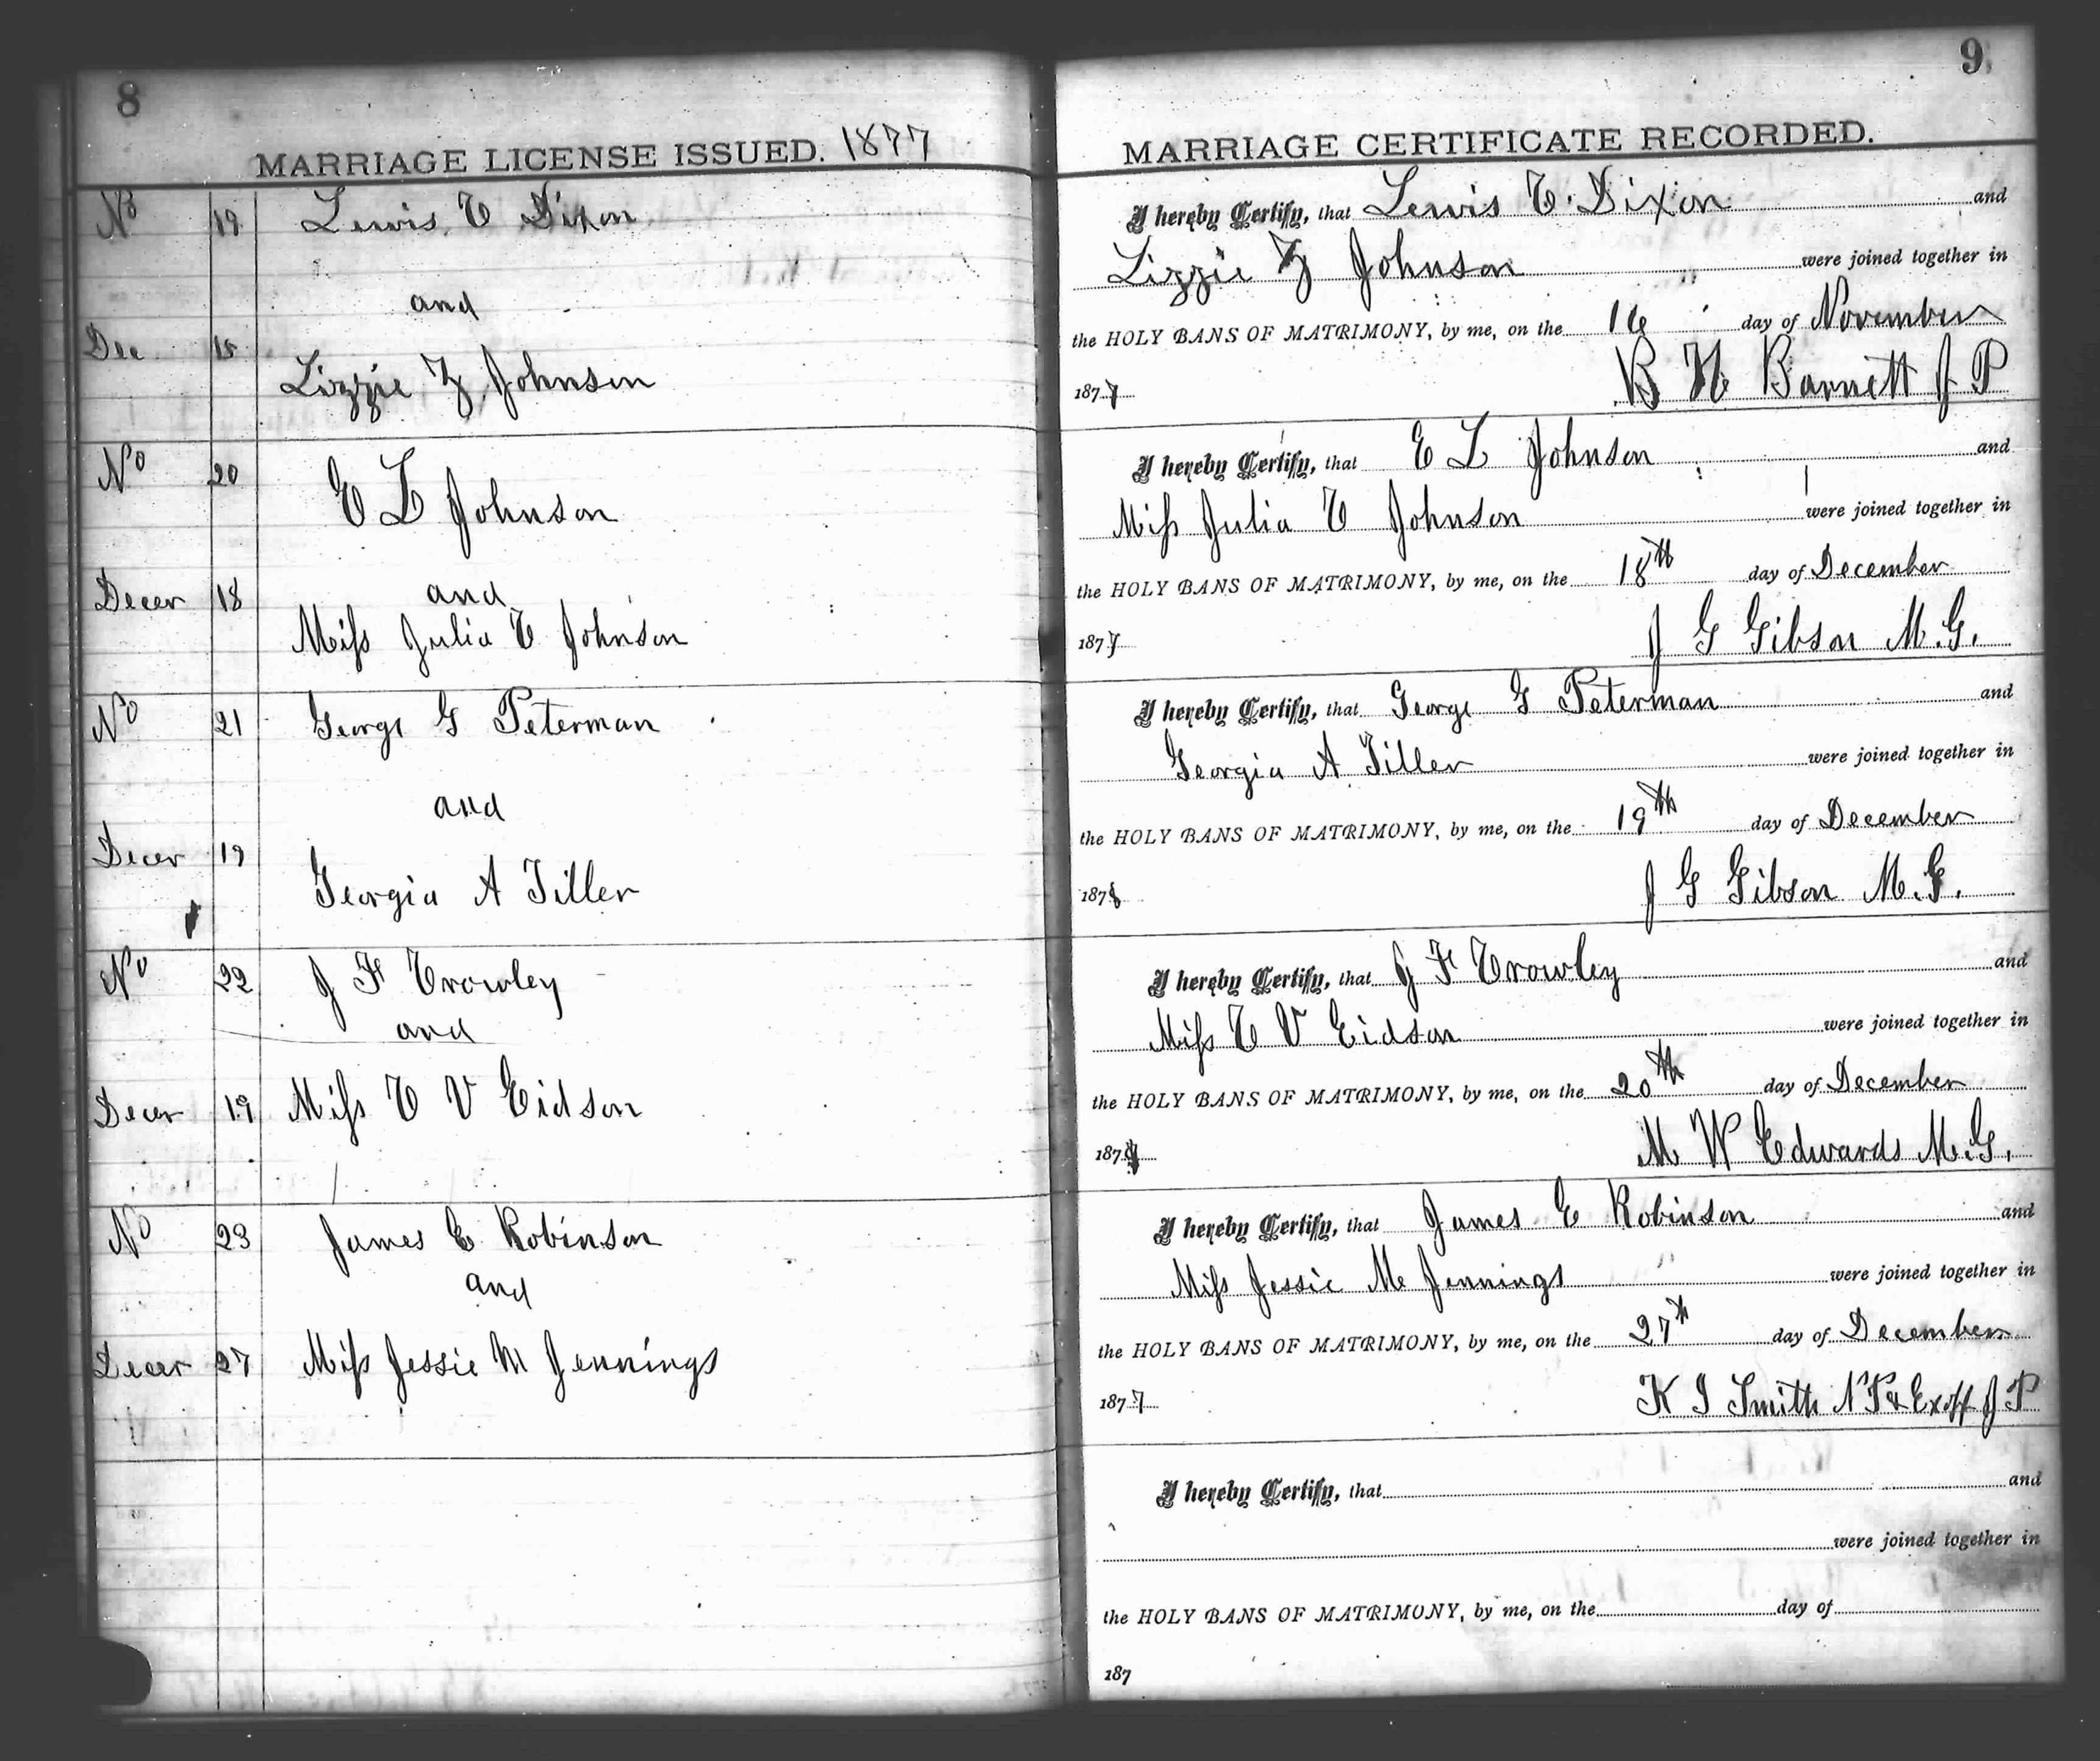 8
MARRIAGE LICENSE ISSUED. 1877
No 19 Lewis C Dixon
and
Dec 15
Lizzie Z Johnson
No 20 E L Johnson
Decer 18 and
Miss Julia C Johnson
No 21 George G Peterman
and
Decer 19
Georgia A Tiller
No 22 J F Crowley
and
Decer 19 Miss C V Eidson
No 23 James E Robinson
and
Decer 27 Miss Jessie M Jennings
9
MARRIAGE CERTIFICATE RECORDED.
I hereby Certify, that Lewis C. Dixon and
Lizzie Z Johnson were joined together in
the HOLY BANS OF MATRIMONY, by me, on the 16 day of November
1877 B H Barnett J P
I hereby Certify, that E L Johnson and
Miss Julia C Johnson were joined together in
the HOLY BANS OF MATRIMONY, by me, on the 18th day of December
1877 J G Gibson M.G.
I hereby Certify, that George G Peterman and
Georgia A Tiller were joined together in
the HOLY BANS OF MATRIMONY, by me, on the 19th day of December
1878 J G Gibson M.G.
I hereby Certify, that J F Crowley and
Miss C V Eidson were joined together in
the HOLY BANS OF MATRIMONY, by me, on the 20th day of December
187 M W Edwards M.G.
I hereby Certify, that James E Robinson and
Miss Jessie M Jennings were joined together in
the HOLY BANS OF MATRIMONY, by me, on the 27th day of December
1877 K J Smith N P & Exoff J P
I hereby Certify, that and
were joined together in
the HOLY BANS OF MATRIMONY, by me, on the day of
187